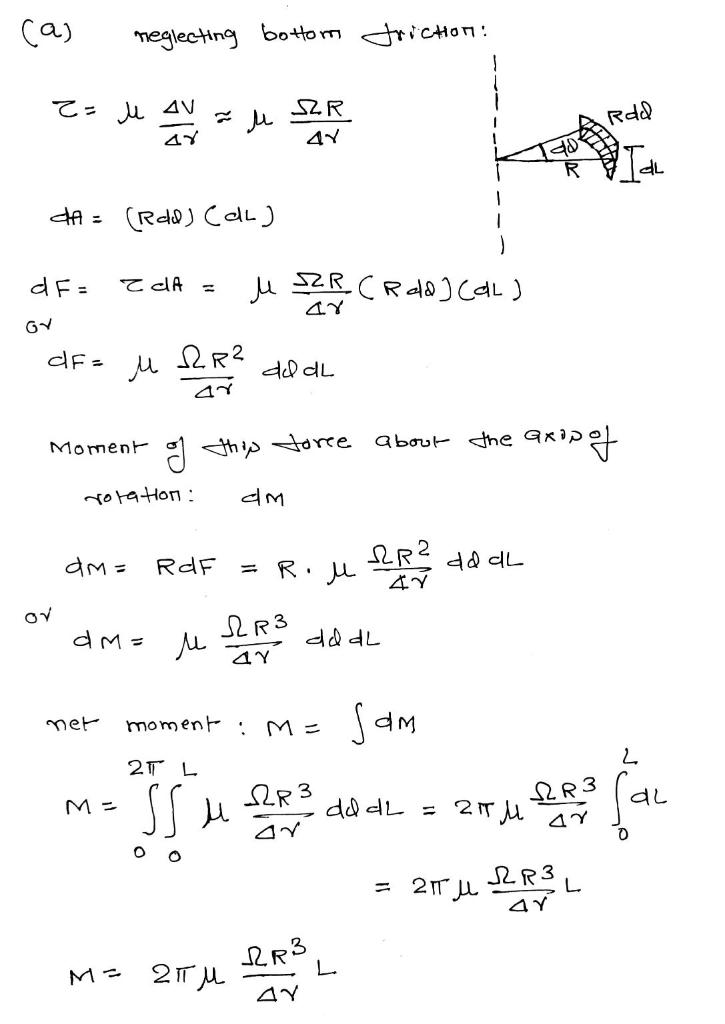 (a) neglecting bottom friction:
τ = μ ΔV/Δr ≈ μ ΩR/Δr
Rdθ
dθ
R
dL
dA = (Rdθ) (dL)
dF = τ dA = μ ΩR/Δr (Rdθ)(dL)
or
dF = μ ΩR²/Δr dθ dL
Moment of this force about the axis of
rotation: dM
dM = RdF = R. μ ΩR²/Δr dθ dL
or
dM = μ ΩR³/Δr dθ dL
net moment : M = ∫dM
M = ∫₀^2π ∫₀^L μ ΩR³/Δr dθ dL = 2π μ ΩR³/Δr ∫₀^L dL
= 2π μ ΩR³/Δr L
M = 2π μ ΩR³/Δr L